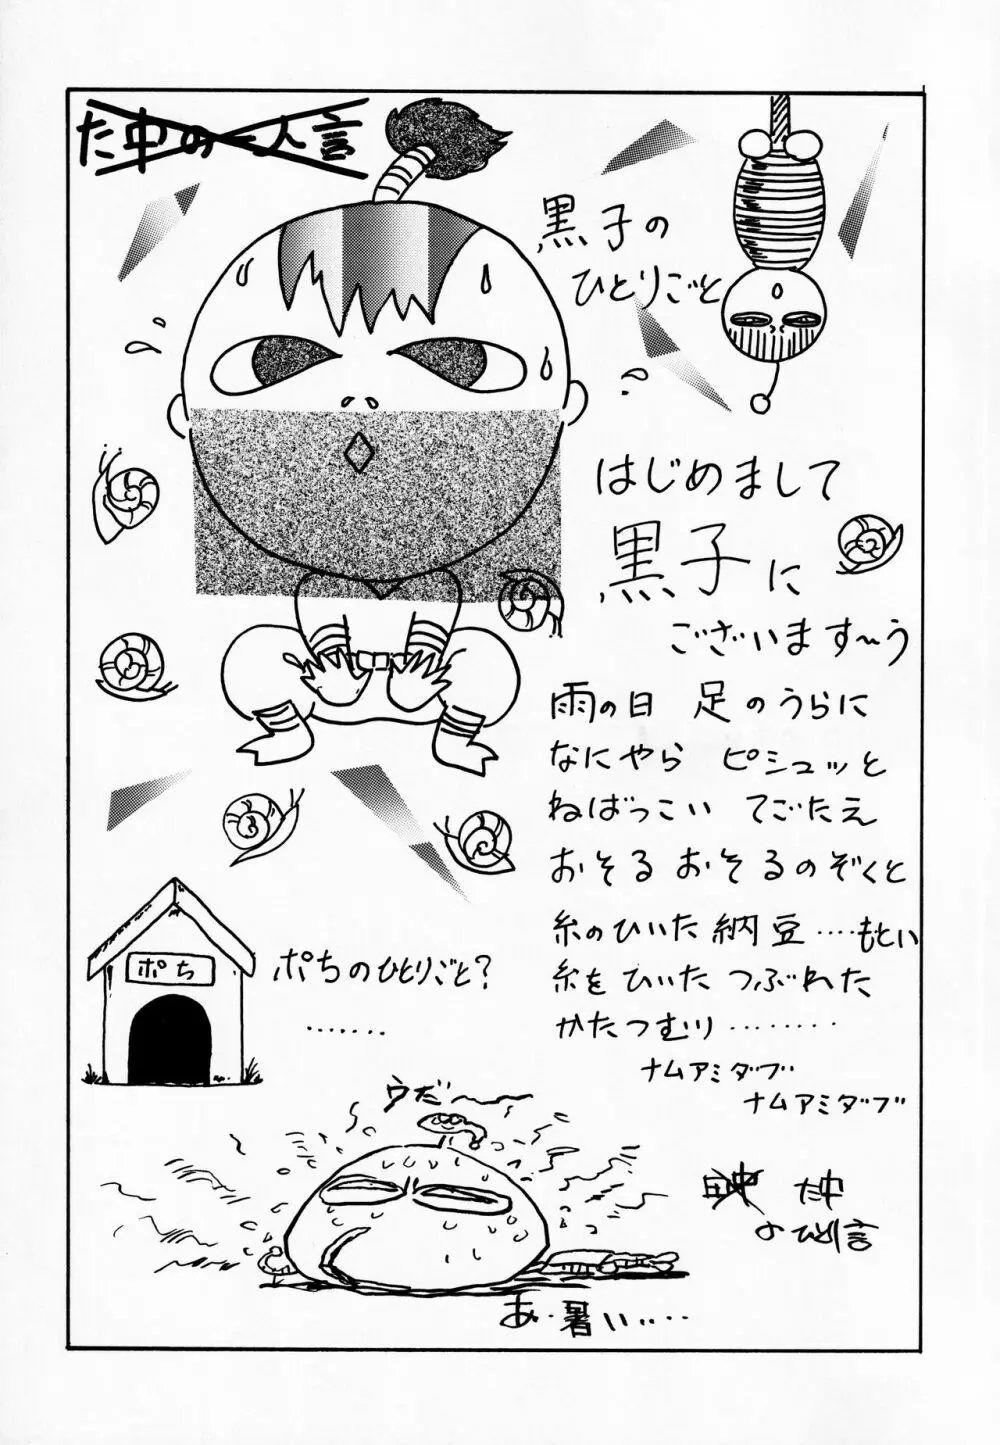 た中の一人言
黒子の
ひとりごと
はじめまして
黒子に
ございます〜う
雨の日 足のうらに
なにやら ピシュッと
ねばっこい てごたえ
おそる おそるのぞくと
糸のひいた 納豆‥‥もとい
糸を ひいた つぶれた
かたつむり‥‥‥‥
ナムアミダブ
ナムアミダブ
ポち
ポちのひとりごと?
‥‥‥‥
ウだ〜
た中
のひとり言
あ‥暑い‥‥